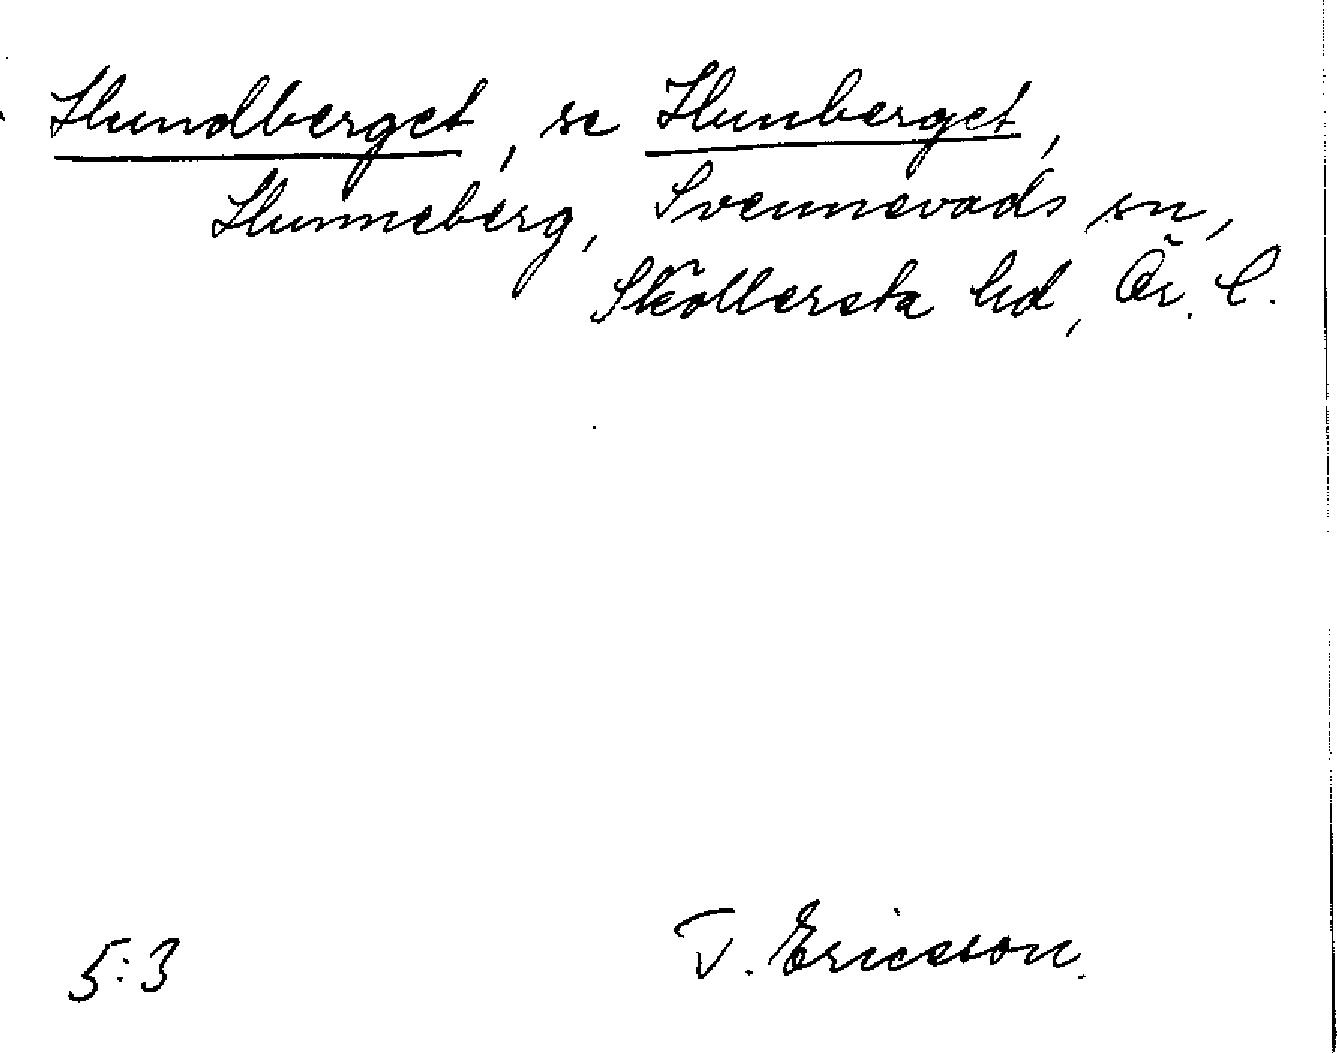 Hundberget, se Hunberget,
Hunneberg, Svennevads sn,
Sköllersta hd, Ör. l.
5:3
T. Ericsson.